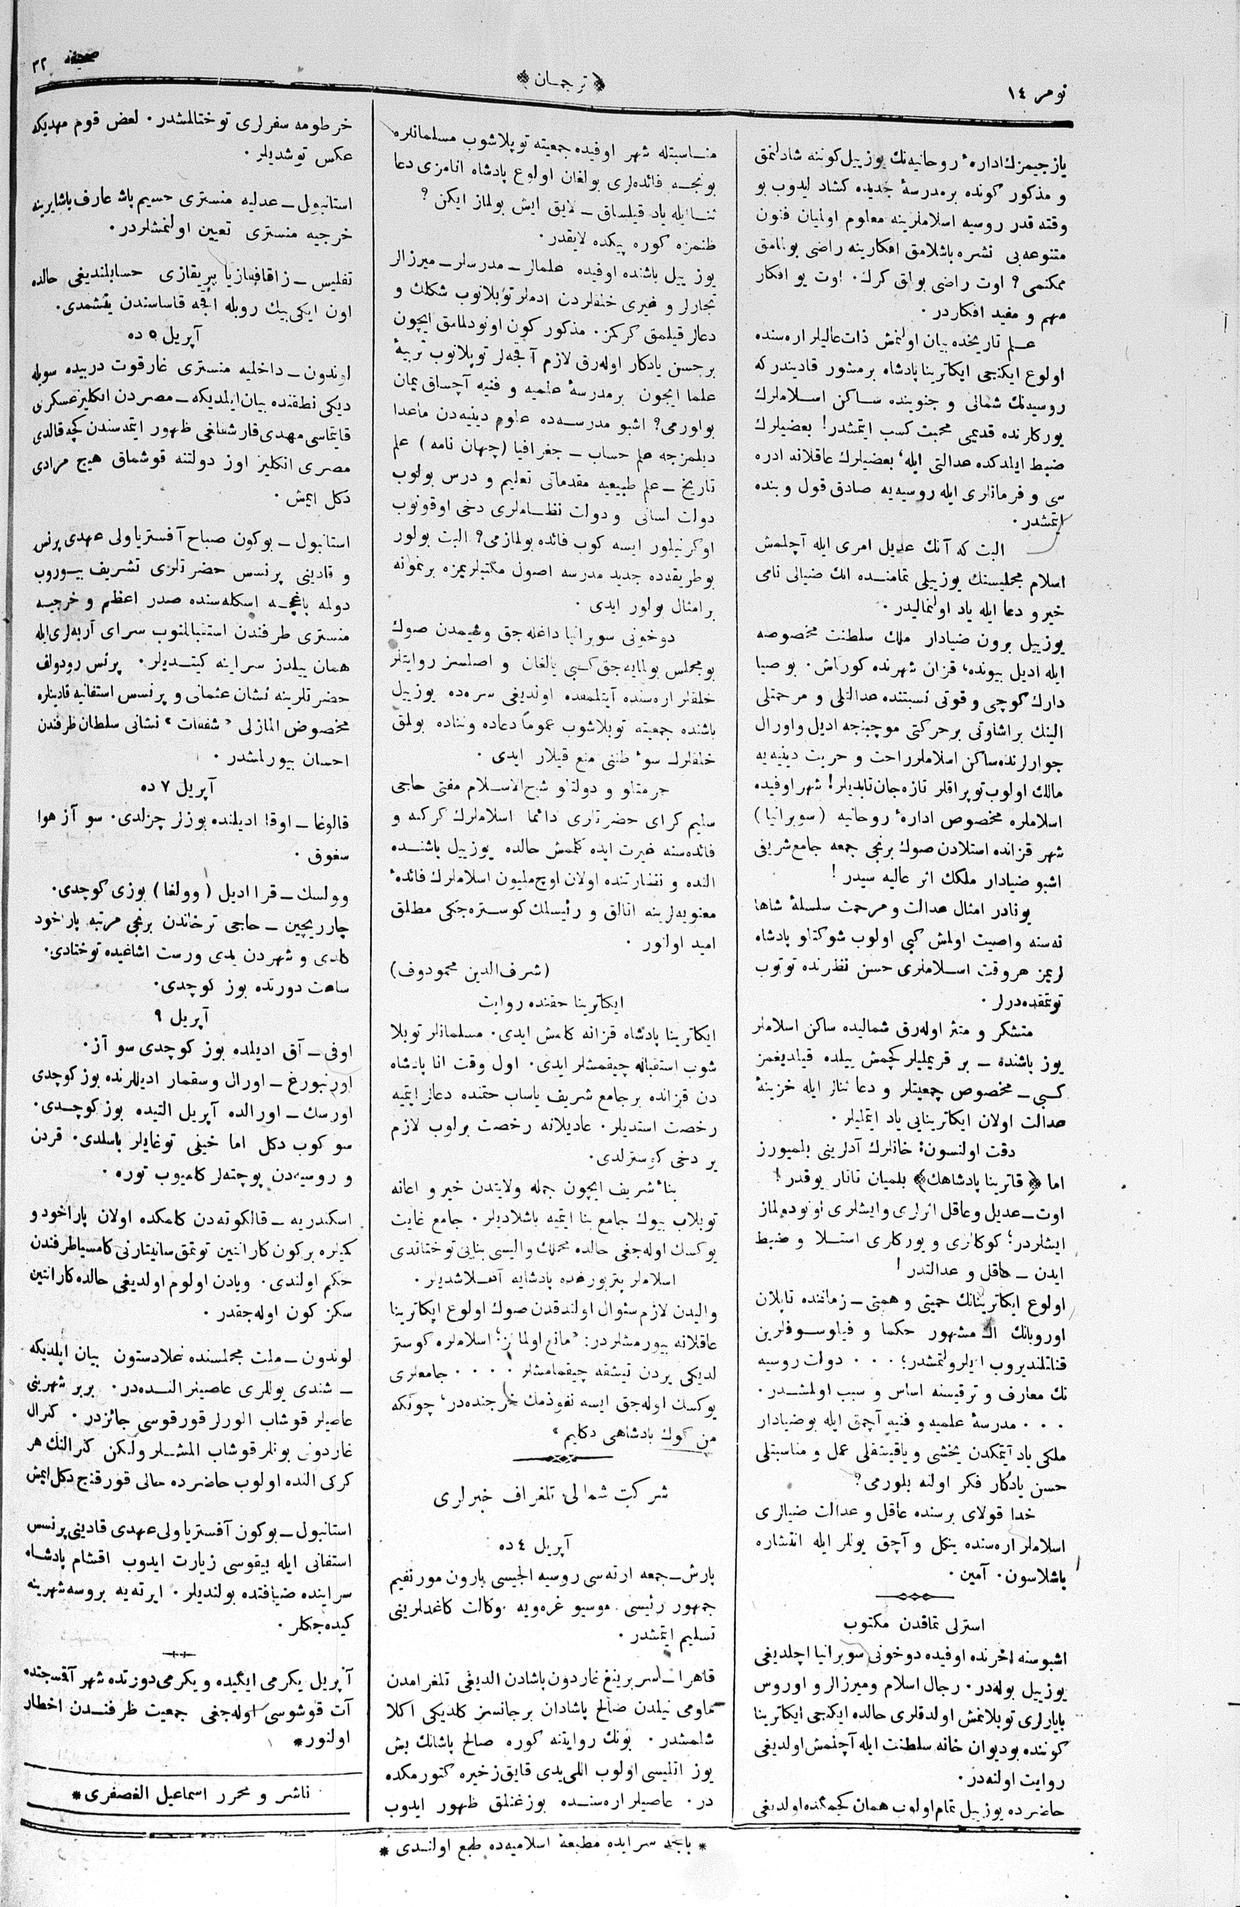 نومر ١٤
﴿ ترجمان ﴾
صحيفه ٣٢
يازجيمزك اداره‌ٔ روحانيه‌نك يوزييل كوننه شادلنمق
و مذكور كونده برمدرسهٔ جديده كشاد ايدوب بو
وقته قدر روسيه اسلاملرينه معلوم اولميان فنون
متنوعه‌يى نشره باشلامق افكارينه راضى بولنامق
ممكنمى؟ اوت راضى بولق كرك. اوت بو افكار
مهم و مفيد افكاردر.
علم تاريخده بيان اولنمش ذات عاليلر اره‌سنده
اولوغ ايكنجى ايكاترينا پادشاه برمشور قادیندركه
روسيه‌نك شمالى و جنوبنده ساكن اسلاملرك
يوركلرنده قديمى محبت كسب ايتمشدر! بعضيلرك
ضبط ايلدكده عدالتى ايله، بعضيلرك عاقلانه ادره
سى و فرمانلرى ايله روسيه‌يه صادق قول و بنده
ايتمشدر.
البت كه آنك عديل امرى ايله آچلمش
اسلام مجلسينك يوزييلى تمامنده انك ضيالى نامى
خير و دعا ايله ياد اولنماليدر.
يوزييل برون ضيادار ملك سلطنت مخصوصه
ايله اديل بيونده، قزان شهرنده كوراش. بو ضيا
دارك كوچى و قوتى نسبتنده عدالتلى و مرحمتلى
الينك براشاوتى برحركتى موجبنجه اديل و اورال
جوارلرنده ساكن اسلاملر راحت و حريت دينيه‌يه
مالك اولوب توپراقلر تازه جان تاپديلر! شهر اوفيده
اسلاملره مخصوص ادارهٔ روحانيه (سوبرانيا)
شهر قزانده استلادن صوك برنجى جمعه جامع شريفى
اشبو ضيادار ملكك اثر عاليه سيدر!
بونادر امثال عدالت و مرحمت سلسلهٔ شاها
نه‌سنه واصيت اولمش كبى اولوب شوكتلو پادشاه
لريمز هروقت اسلاملرى حسن نظرنده توتوب
توتمقده‌درلر.
متشكر و متنز اوله‌رق شماليده ساكن اسلاملر
يوز باشنده – بر قريمليلر كچمش ييلده قيلديغمز
كبى – مخصوص جمعيتلر و دعا ثنالر ايله خزينهٔ
عدالت اولان ايكاترينايى ياد ايتمليلر.
دقت اولنسون: خانلرك آدلرينى بلميورز
اما ﴿قاترينا پادشاهك﴾ بلميان تاتار يوقدر!
اوت–عديل و عاقل اثرلرى و ايشلرى اونودلماز
ايشلردر؛ كوكلرى و يوركلرى استلا و ضبط
ايدن – عاقل و عدالتدر!
اولوغ ايكاترينانك حميتى و همتى – زماننده تاپلان
اوروپانك اك مشهور حكما و فيلوسوفلرين
قناتلنديروب ايلرولتمشدر؛ ... دولت روسيه
نك معارف و ترقيسنه اساس و سبب اولمشدر.
... مدرسهٔ علميه و فنيه آچمق ايله بوضيادار
ملكى ياد آيتمكدن يخشى و ياقيشقلى عمل و مناسبتلى
حسن يادكار فكر اولنه بلورمى؟
خدا قولاى برسنده عاقل و عدالت ضيالرى
اسلاملر اره‌سنده ينكل و آچق يوللر ايله انتشاره
باشلاسون. آمين.
استرلى تماقدن مكتوب
اشبوسنه اخرنده اوفيده دوخونى سوبرانيا اچلديغى
يوزييل بوله‌در. رجال اسلام و ميرزالر و اوروس
بايارلرى توپلانمش اولدقلرى حالده ايكنجى ايكاترينا
كوننده بوديوان خانه سلطنت ايله آچلمش اولديغى
روايت اولنه‌در.
حاضرده يوزييل تمام اولوب همان كچمكده اولديغى
مناسبتله شهر اوفيده جمعيته توپلاشوب مسلمانلره
بونجه فائده‌لرى بولغان اولوغ پادشاه انامزى دعا
ثنا ايله ياد قيلساق – لايق ايش بولماز ايكن؟
ظنمزه كوره پيكده لايقدر.
يوز ييل باشنده اوفيده علمالر – مدرسلر – ميرزالر
تجارلر و غيرى خلقلردن ادملر توپلانوب شكلك و
دعالر قيلمق كركمز. مذكور كون اونودلمامق ايچون
برحسن يادكار اوله‌رق لازم آقچه‌لر توپلانوب تربيهٔ
علما ايچون برمدرسهٔ علميه و فنيه آچساق يمان
بولورمى؟ اشبو مدرسه‌ده علوم دينيه‌دن ماعدا
ديلمزجه علم حساب – جغرافيا (جهان نامه) علم
تاريخ – علم طبيعيه مقدماتى تعليم و درس بولوب
دولت لسانى و دولت نظاملرى دخى اوقونوب
اوكرنيلور ايسه كوب فائده بولمازمى؟ البت بولور
بوطريقده جديد مدرسه اصول مكتبلريمزه برنمونه
برامثال بولور ايدى.
دوخونى سوبرانيا داغله‌جق وغيمدن صوك
بومجلس بولمايه‌جق كبى يالغان و اصلسز روايتلر
خلقلر اره‌سنده آيتلمقده اولديغى سره‌ده يوزييل
باشنده جمعيته توپلاشوب عموما دعاده وثناده بولمق
خلقلرك سوء ظننى منع قيلار ايدى.
حرمتلو و دولتلو شيخ الاسلام مفتى حاجى
سليم كراى حضرتلرى دائما اسلاملرك كركنه و
فائده‌سنه غيرت ايده كلمش حالده يوزييل باشنده
النده و نظارتنده اولان اوچ مليون اسلاملرك فائده‌ٔ
معنويه‌لرينه اناليق و رئيسلك كوستره‌جكى مطلق
اميد اولنور.
(شرف‌الدين محمودوف)
ايكاترينا حقنده روايت
ايكاترينا پادشاه قزانه كلمش ايدى. مسلمانلر توپلا
شوب استقباله چيقمشلر ايدى. اول وقت انا پادشاه
دن قزانده برجامع شريف ياساب حقنده دعالر ايتميه
رخصت استديلر. عاديلانه رخصت برلوب لازم
ير دخى كوسترلدى.
بناءٔ شريف ايچون جمله ولايتدن خير و اعانه
توپلاب بيوك جامع بنا ايتميه باشلاديلر. جامع غايت
يوكسك اوله‌جغى حالده محلك واليسى بنايى توختاتدى
اسلاملر پتربورغده پادشايه آڭلاشديلر.
واليدن لازم سئوال اولندقدن صوك اولوغ ايكاترينا
عاقلانه بيورمشلردر: «مانع اولمايز؛ اسلاملره كوستر
لديكى يردن تيشقه چيقمامشلر .... جامعلرى
يوكسك اوله‌جق ايسه نفوذمك خرجنده‌در، چونكه
من كوك پادشاهى دكليم»
شركت شمالى. تلغراف خبرلرى
آپريل ٤ ده
پارش–جمعه ارته‌سى روسيه الچيسى بارون مورنقيم
جمهور رئيسى موسيو غره‌ويه وكالت كاغدلرينى
تسليم ايتمشدر.
قاهرا–سر برينغ غاردون پاشادن الديغى تلغرامدن
معلومى نيلدن صالح پاشادان برجانسز كلديكى اكلا
شلمشدر. بونك روايتنه كوره صالح پاشانك بش
يوز اتليسى اولوب اللى يدى قايق زخيره كتورمكده
در. عاصيلر اره‌سنده بوزغنلق ظهور ايدوب
خرطومه سفرلرى توختالمشدر. بعض قوم مهديكه
عكس توشديلر.
استانبول–عدليه منسترى حسيم پاشا عارف پاشايرينه
خرجيه منسترى تعيين اولنمشلردر.
تفليس – زاقافقازيا پريقازى حسابلنديغى حالده
اون ايكى بيك روبله اقچه قاساسندن يتشمدى.
آپريل ٥ ده
لوندون–داخليه منسترى غارقوت دربيده سويله
ديكى نطقنده بيان ايلديكه – مصردن انكليز عسكرى
قايتماسى مهدى قارشلغى ظهور ايتمه‌سندن كچه قالدى
مصرى انكليز اوز دولتنه قوشماق هيچ مرادى
دكل ايمش.
استانبول – بوكون صباح آفستريا ولى عهدى پرنس
و قادينى پرنسس حضرتلرى تشريف بيوروب
دولمه باغچه اسكله‌سنده صدر اعظم و خرجيه
منسترى طرفندن استقبالنوب سراى آربه‌لرى ايله
همان ييلدز سراينه كيتديلر. پرنس رودولف
حضرتلرينه نشان عثمانى و پرنسس استفانيه قادينلره
مخصوص المازلى «شفقات» نشانى سلطان طرفندن
احسان بيورلمشدر.
آپريل ٧ ده
قالوغا – اوقا اديلنده بوزلر چزلدى. سو آز هوا
سغوق.
وولسك–قرا اديل (وولغا) بوزى كوچدى.
چارريچين – حاجى ترخاندن برنجى مرتبه پاراخود
كلدى و شهردن يدى ورست اشاغيده توختادى.
ساعت دورتده بوز كوچدى.
آپريل ٩
اوفى – آق اديلده بوز كوچدى سو آز.
اورنبورغ – اورال و سقمار اديللرنده بوز كوچدى
اورسك–اورالده آپريل التيده بوزكوچدى.
سو كوب دكل اما خيلى توغايلر باسلدى. قردن
و روسيه‌دن پوچته‌لر كلميوب توره.
اسكندريه – قالكوته‌دن كلمكده اولان پاراخود و
كميلره بركون كارانتين توتمق سانيتارنى كاميسيا طرفندن
حكم اولندى. وبادن اولوم اولديغى حالده كارانتين
سكز كون اوله‌جقدر.
لوندون–ملت مجلسنده غلادستون بيان ايلديكه
– شندى يوللرى عاصيلر النده‌در. بربر شهرينى
عاصيلر قوشاب الورلر قورقوسى جائزدر. كنرال
غاردونى بونلر قوشاب المشلر وليكن كنرالنك هر
كركى النده اولوب حاضرده حالى قورقنج دكل ايمش
استانبول–بوكون آفستريا ولى عهدى قادينى پرنسس
استفانى ايله بيقوسى زيارت ايدوب اقشام پادشاه
سراينده ضيافتده بولنديلر. ايرته‌يه بروسه شهرينه
كيده‌جكلر.
آپريل يكرمى ايكيده و يكرمى دورتده شهر آقمسجدده
آت قوشوسى اوله‌جغى جمعيت طرفندن اخطار
اولنور*
ناشر و محرر اسماعيل الغصفرى*
* باغچه سرايده مطبعهٔ اسلاميه‌ده طبع اولندى *